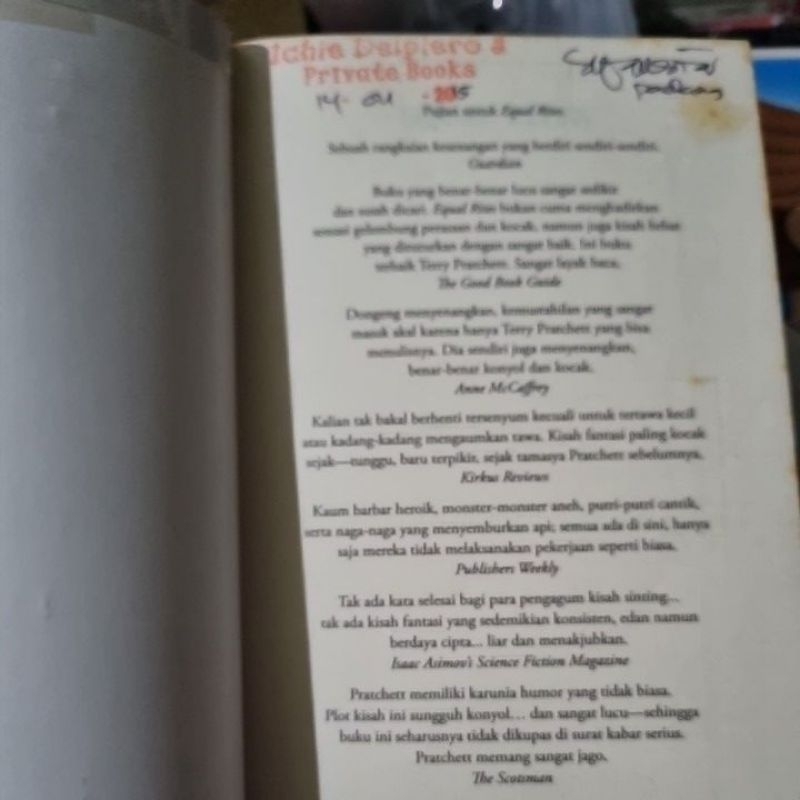 Private Books
14- 04
Pujian untuk Equal Rites
Sebuah rangkaian kesenangan yang berdiri sendiri-sendiri.
Guardian
Buku yang benar-benar lucu sangat
dan susah dicari. Equal Rites bukan cuma menghadirkan
gelombang perasaan dan kocak, namun juga kisah
yang diteruskan dengan sangat baik. Ini buku
terbaik Terry Pratchett. Sangat layak baca.
The Good Book Guide
Dongeng menyenangkan, kemustahilan yang sangat
masuk akal karena hanya Terry Pratchett yang bisa
menulisnya. Dia sendiri juga menyenangkan,
benar-benar konyol dan kocak.
Anne McCaffrey
Kalian tak bakal berhenti tersenyum kecuali untuk tertawa kecil
atau kadang-kadang mengaumkan tawa. Kisah fantasi paling kocak
sejak—tunggu, baru terpikir, sejak tamasya Pratchett sebelumnya.
Kirkus Reviews
Kaum barbar heroik, monster-monster aneh, putri-putri cantik,
serta naga-naga yang menyemburkan api; semua ada di sini, hanya
saja mereka tidak melaksanakan pekerjaan seperti biasa.
Publishers Weekly
Tak ada kata selesai bagi para pengagum kisah sinting...
tak ada kisah fantasi yang sedemikian konsisten, edan namun
berdaya cipta... liar dan menakjubkan.
Isaac Asimov's Science Fiction Magazine
Pratchett memiliki karunia humor yang tidak biasa.
Plot kisah ini sungguh konyol... dan sangat lucu—sehingga
buku ini seharusnya tidak dikupas di surat kabar serius.
Pratchett memang sangat jago.
The Scotsman